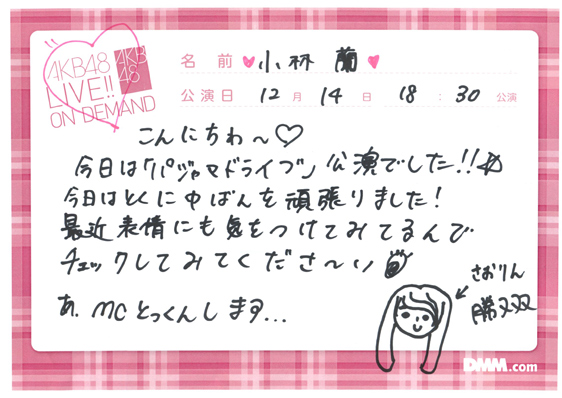 AKB48
LIVE!!
ON DEMAND
AKB
48
名前 ♥小林 蘭♥
公演日 12月 14日 18:30公演
こんにちわ〜♡
今日は「パジャマドライブ」公演でした!!
今日はとくに中ばんを頑張りました!
最近表情にも気をつけてみてるんで
チェックしてみてくださ〜い
あ、MCとっくんします...
さおりん
DMM.com